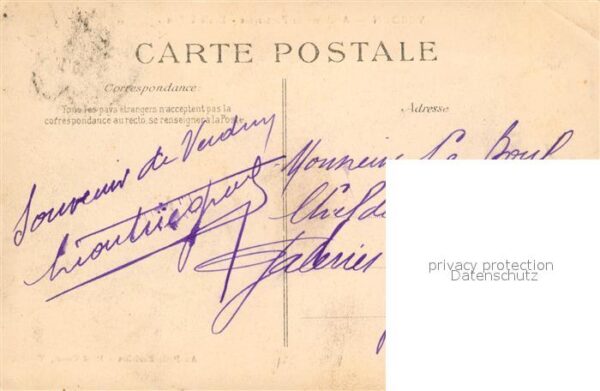 CARTE POSTALE
Correspondance
Tous les pays étrangers n'acceptent pas la
correspondance au recto, se renseigner à la Poste
Adresse
Souvenir de Verdun
Monsieur Le
Chef de
Galeries
privacy protection
Datenschutz